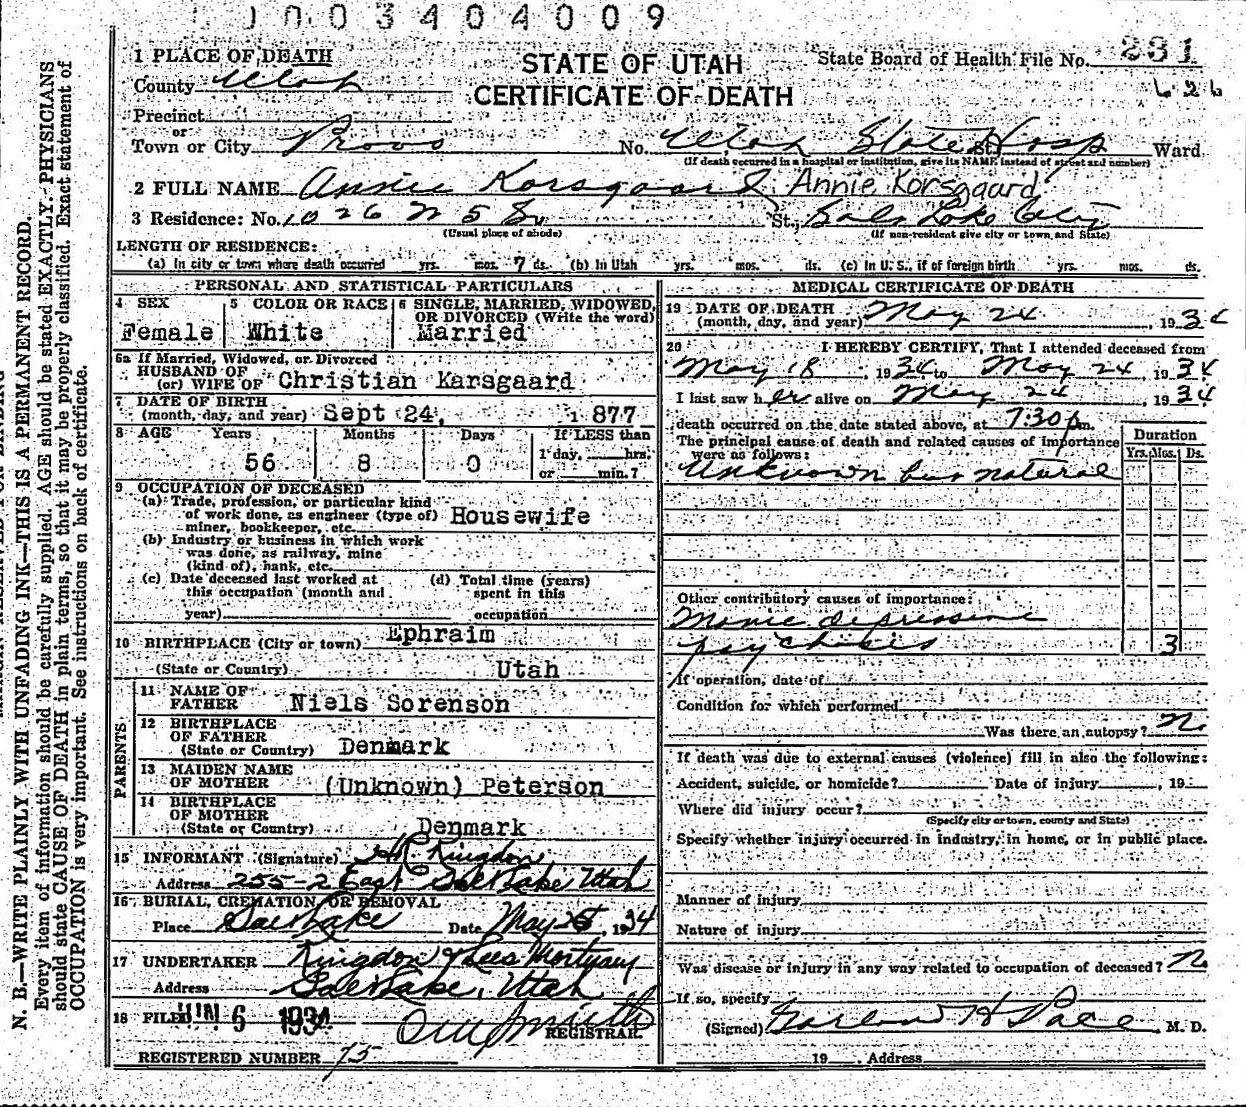 1003404009
STATE OF UTAH
CERTIFICATE OF DEATH
State Board of Health File No. 281
626
1 PLACE OF DEATH
County Utah
Precinct
or
Town or City Provo No. Utah State Hosp St. Ward
(If death occurred in a hospital or institution, give its NAME instead of street and number)
2 FULL NAME Annie Korsgaard Annie Korsgaard
3 Residence: No. 1026 W 5 So St., Salt Lake City
(Usual place of abode) (If non-resident give city or town and State)
LENGTH OF RESIDENCE:
(a) In city or town where death occurred yrs. mos. 7 ds. (b) In Utah yrs. mos. ds. (c) In U. S., if of foreign birth yrs. mos. ds.
PERSONAL AND STATISTICAL PARTICULARS
4 SEX 5 COLOR OR RACE 6 SINGLE, MARRIED, WIDOWED, OR DIVORCED (Write the word)
Female White Married
6a If Married, Widowed, or Divorced
HUSBAND OF
(or) WIFE OF Christian Karsgaard
7 DATE OF BIRTH
(month, day, and year) Sept 24, 1877
8 AGE Years Months Days If LESS than
1 day, hrs.
56 8 0 or min.?
9 OCCUPATION OF DECEASED
(a) Trade, profession, or particular kind
of work done, as engineer (type of) Housewife
miner, bookkeeper, etc.
(b) Industry or business in which work
was done, as railway, mine
(kind of), bank, etc.
(c) Date deceased last worked at (d) Total time (years)
this occupation (month and spent in this
year) occupation
10 BIRTHPLACE (City or town) Ephraim
(State or Country) Utah
PARENTS
11 NAME OF
FATHER Niels Sorenson
12 BIRTHPLACE
OF FATHER
(State or Country) Denmark
13 MAIDEN NAME
OF MOTHER (Unknown) Peterson
14 BIRTHPLACE
OF MOTHER
(State or Country) Denmark
15 INFORMANT (Signature) Kingdon
Address 255-2 East Salt Lake, Utah
16 BURIAL, CREMATION, OR REMOVAL
Place Salt Lake Date May 1934
17 UNDERTAKER Kingdon & Lees Mortuary
Address Salt Lake, Utah
18 FILED JUN 6 1934
REGISTRAR
REGISTERED NUMBER 75
MEDICAL CERTIFICATE OF DEATH
19 DATE OF DEATH
(month, day, and year) May 24, 1934
20 I HEREBY CERTIFY, That I attended deceased from
May 18, 1934 to May 24, 1934
I last saw her alive on May 24, 1934
death occurred on the date stated above, at 7:30 pm.
The principal cause of death and related causes of importance
were as follows: Duration
Yrs. Mos. Ds.
Unknown but natural
Other contributory causes of importance:
Manic depressive
psychosis 3
If operation, date of
Condition for which performed
Was there an autopsy? No
If death was due to external causes (violence) fill in also the following:
Accident, suicide, or homicide? Date of injury , 19
Where did injury occur?
(Specify city or town, county and State)
Specify whether injury occurred in industry, in home, or in public place.
Manner of injury
Nature of injury
Was disease or injury in any way related to occupation of deceased? No
If so, specify
(Signed) Garland H Pace M. D.
19 , Address
N. B.—WRITE PLAINLY WITH UNFADING INK—THIS IS A PERMANENT RECORD.
Every item of information should be carefully supplied. AGE should be stated EXACTLY. PHYSICIANS
should state CAUSE OF DEATH in plain terms, so that it may be properly classified. Exact statement of
OCCUPATION is very important. See instructions on back of certificate.